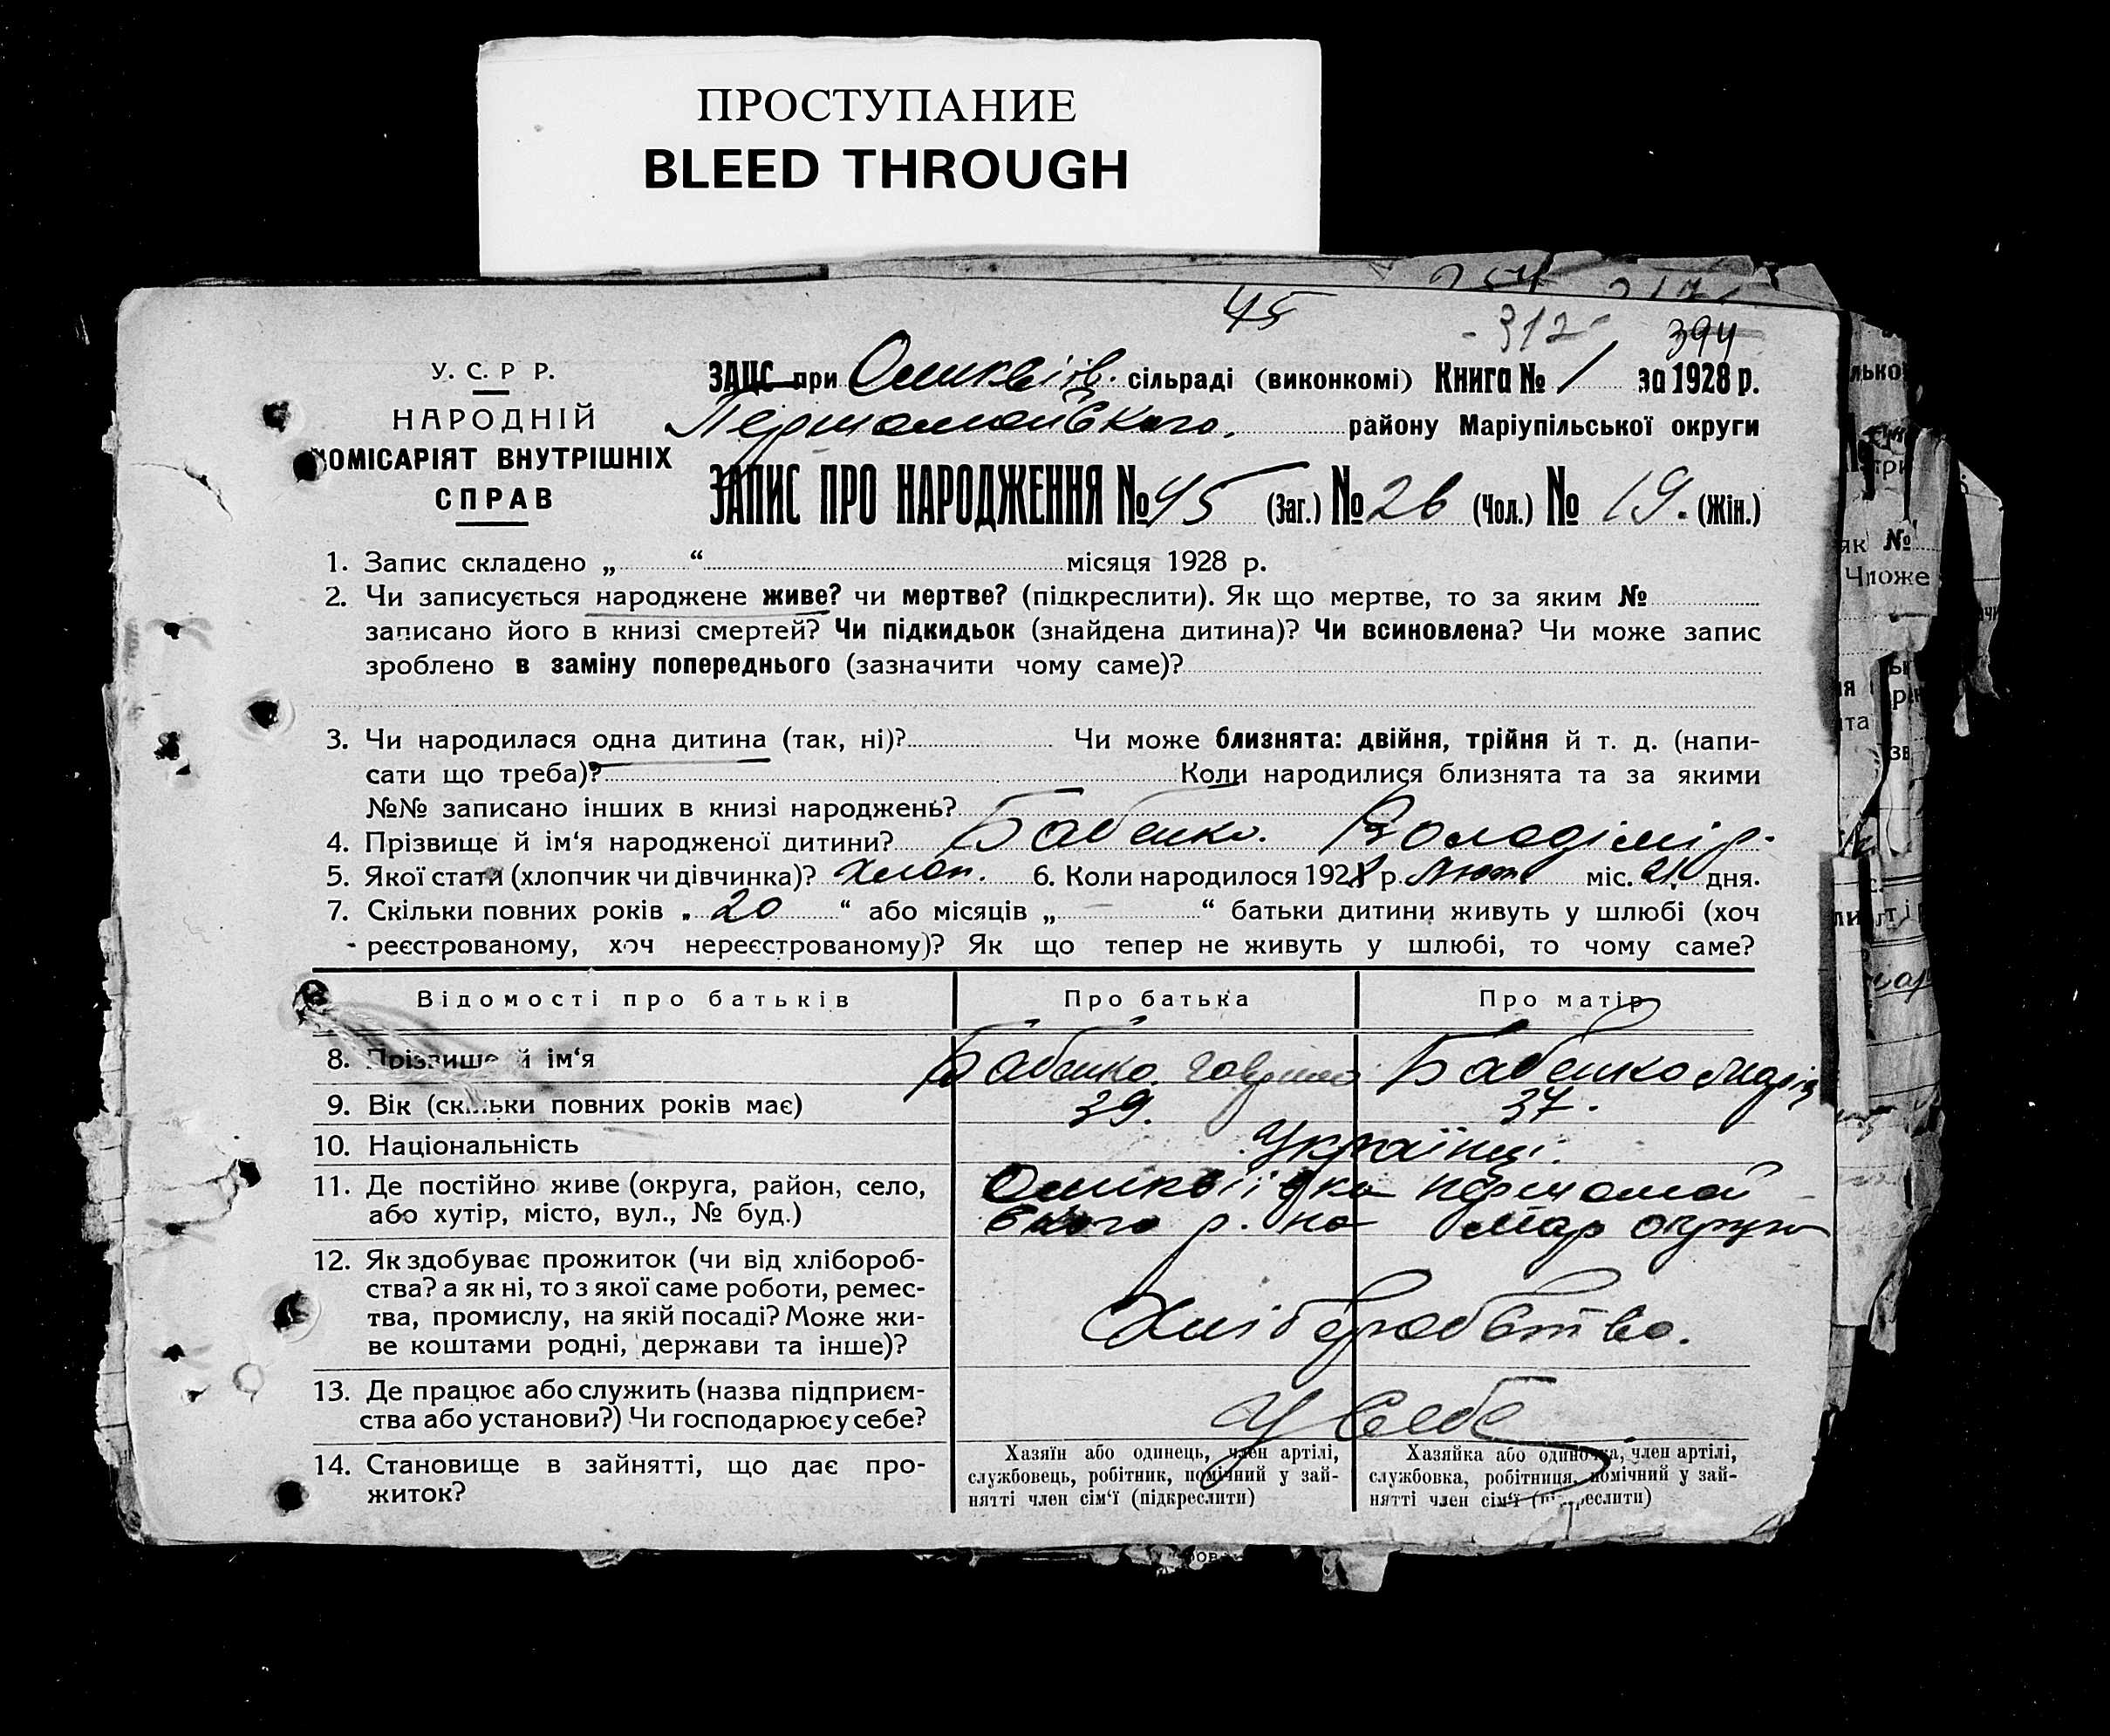 ПРОСТУПАНИЕ
BLEED THROUGH
45
-312- 394
У. С. Р Р.
НАРОДНІЙ
КОМІСАРІЯТ ВНУТРІШНІХ
СПРАВ
ЗАЦС при сільраді (виконкомі) Книга № 1 за 1928 р.
Першомайського. району Маріупільської округи
ЗАПИС ПРО НАРОДЖЕННЯ № 45 (Заг.) № 26 (Чол.) № 19. (Жін.)
1. Запис складено „ “ місяця 1928 р.
2. Чи записується народжене живе? чи мертве? (підкреслити). Як що мертве, то за яким №
записано його в книзі смертей? Чи підкидьок (знайдена дитина)? Чи всиновлена? Чи може запис
зроблено в заміну попереднього (зазначити чому саме)?
3. Чи народилася одна дитина (так, ні)? Чи може близнята: двійня, трійня й т. д. (напи-
сати що треба)? Коли народилися близнята та за якими
№№ записано інших в книзі народжень?
4. Прізвище й ім‘я народженої дитини? Бабенко. Володімір.
5. Якої статі (хлопчик чи дівчинка)? Хлоп. 6. Коли народилося 1928 р. Лют. міс. 21. дня.
7. Скільки повних років „ 20 “ або місяців „ — “ батьки дитини живуть у шлюбі (хоч
реєстрованому, хоч нереєстрованому)? Як що тепер не живуть у шлюбі, то чому саме?
Відомості про батьків Про батька Про матір
8. Прізвище й ім‘я Бабенко Бабенко
9. Вік (скільки повних років має) 39. 37.
10. Національність Українці.
11. Де постійно живе (округа, район, село,
або хутір, місто, вул., № буд.)
першомай
ського р. на Мар округи
12. Як здобуває прожиток (чи від хлібороб-
ства? а як ні, то з якої саме роботи, ремес-
тва, промислу, на якій посаді? Може жи-
ве коштами родні, держави та інше)?
Хліборобство.
13. Де працює або служить (назва підприєм-
ства або установи?) Чи господарює у себе?
У себе
14. Становище в зайнятті, що дає про-
житок?
Хазяїн або одинець, член артілі,
службовець, робітник, помічний у зай-
нятті член сім‘ї (підкреслити)
Хазяйка або одиночка, член артілі,
службовка, робітниця, помічний у зай-
нятті член сім‘ї (підкреслити)